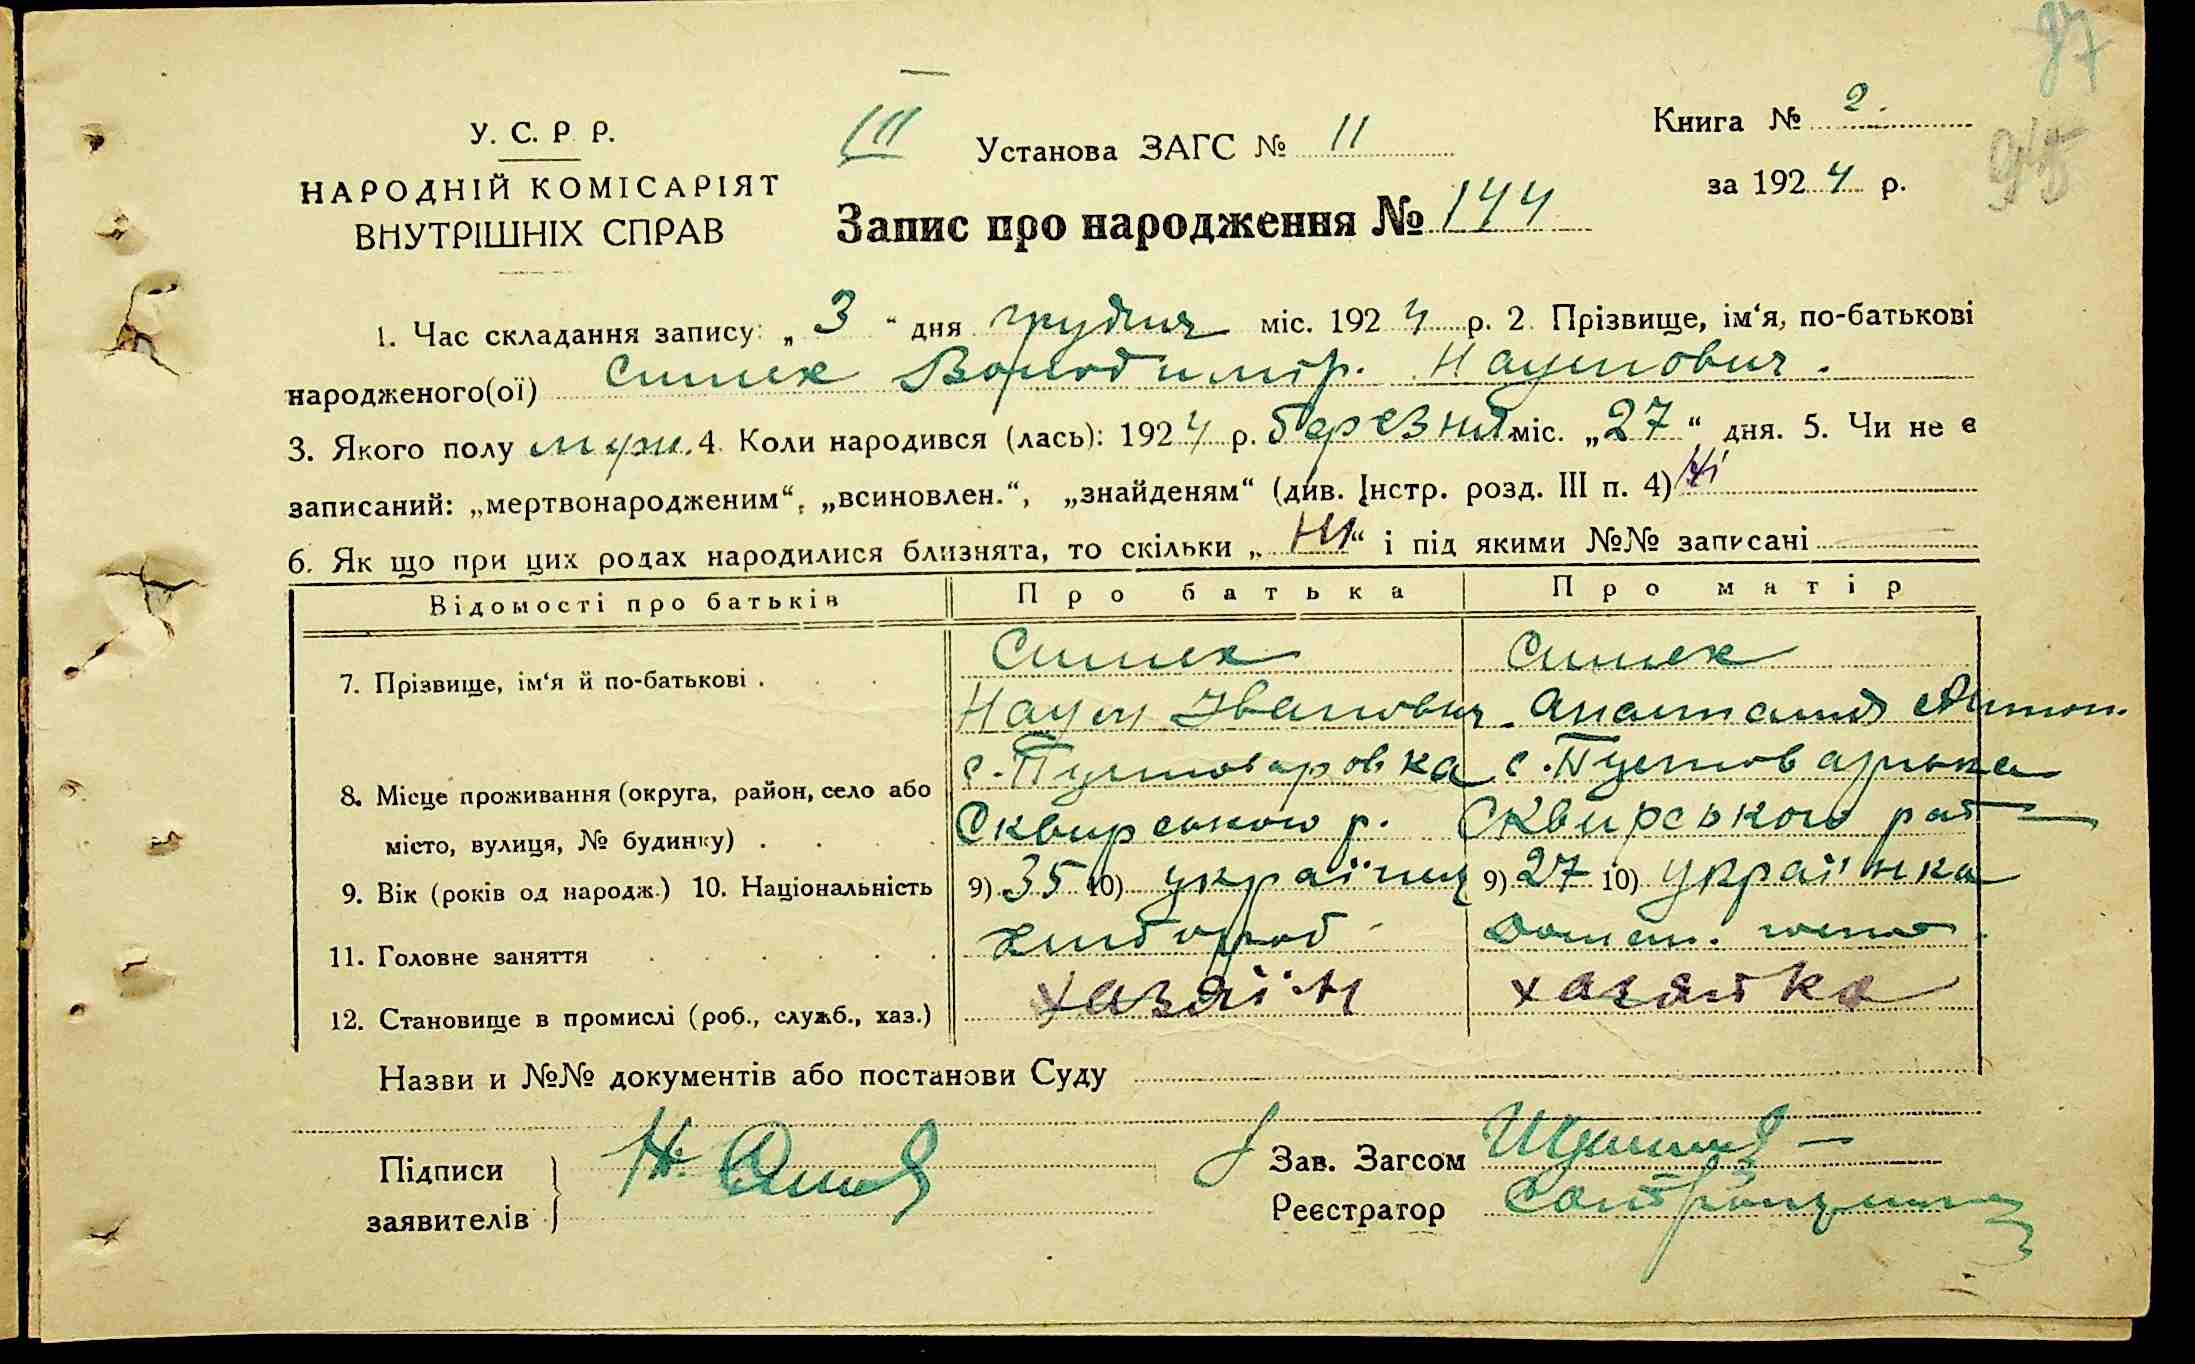 97
У. С. Р. Р.
НАРОДНІЙ КОМІСАРІЯТ
ВНУТРІШНІХ СПРАВ
III Установа ЗАГС № 11
Книга № 2.
за 1924 р.
Запис про народження № 144
1. Час складання запису: „3“ дня грудня міс. 1924 р. 2. Прізвище, ім‘я, по-батькові
народженого(ої) Симек Володимір. Наумович.
3. Якого полу муж. 4. Коли народився (лась): 1924 р. березня міс. „27“ дня. 5. Чи не є
записаний: „мертвонародженим“, „всиновлен.“, „знайденям“ (див. Інстр. розд. III п. 4) Ні
6. Як що при цих родах народилися близнята, то скільки „Ні“ і під якими №№ записані
Відомості про батьків Про батька Про матір
7. Прізвище, ім‘я й по-батькові . Симек Симек
Наум Іванович. Анастасия Антон.
с. Пустоваровка с. Пустоварівка
8. Місце проживання (округа, район, село або
місто, вулиця, № будинку) . Сквирського р. Сквирського рай
9. Вік (років од народж.) 10. Національність 9) 35 10) українец 9) 27 10) українка
11. Головне заняття хлібороб домаш.
12. Становище в промислі (роб., служб., хаз.) хазяїн хазяйка
Назви и №№ документів або постанови Суду
Підписи
заявителів
Н.
Зав. Загсом
Реєстратор